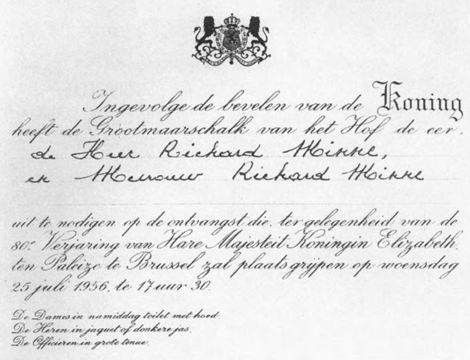 Ingevolge de bevelen van de Koning
heeft de Grootmaarschalk van het Hof de eer,
de Heer Richard Minne,
en Mevrouw Richard Minne
uit te nodigen op de ontvangst die, ter gelegenheid van de
80e Verjaring van Hare Majesteit Koningin Elizabeth,
ten Paleize te Brussel zal plaats grijpen op woensdag
25 juli 1956, te 17 uur 30.
De Dames in namiddag toilet met hoed.
De Heren in jaquet of donkere jas.
De Officieren in grote tenue.